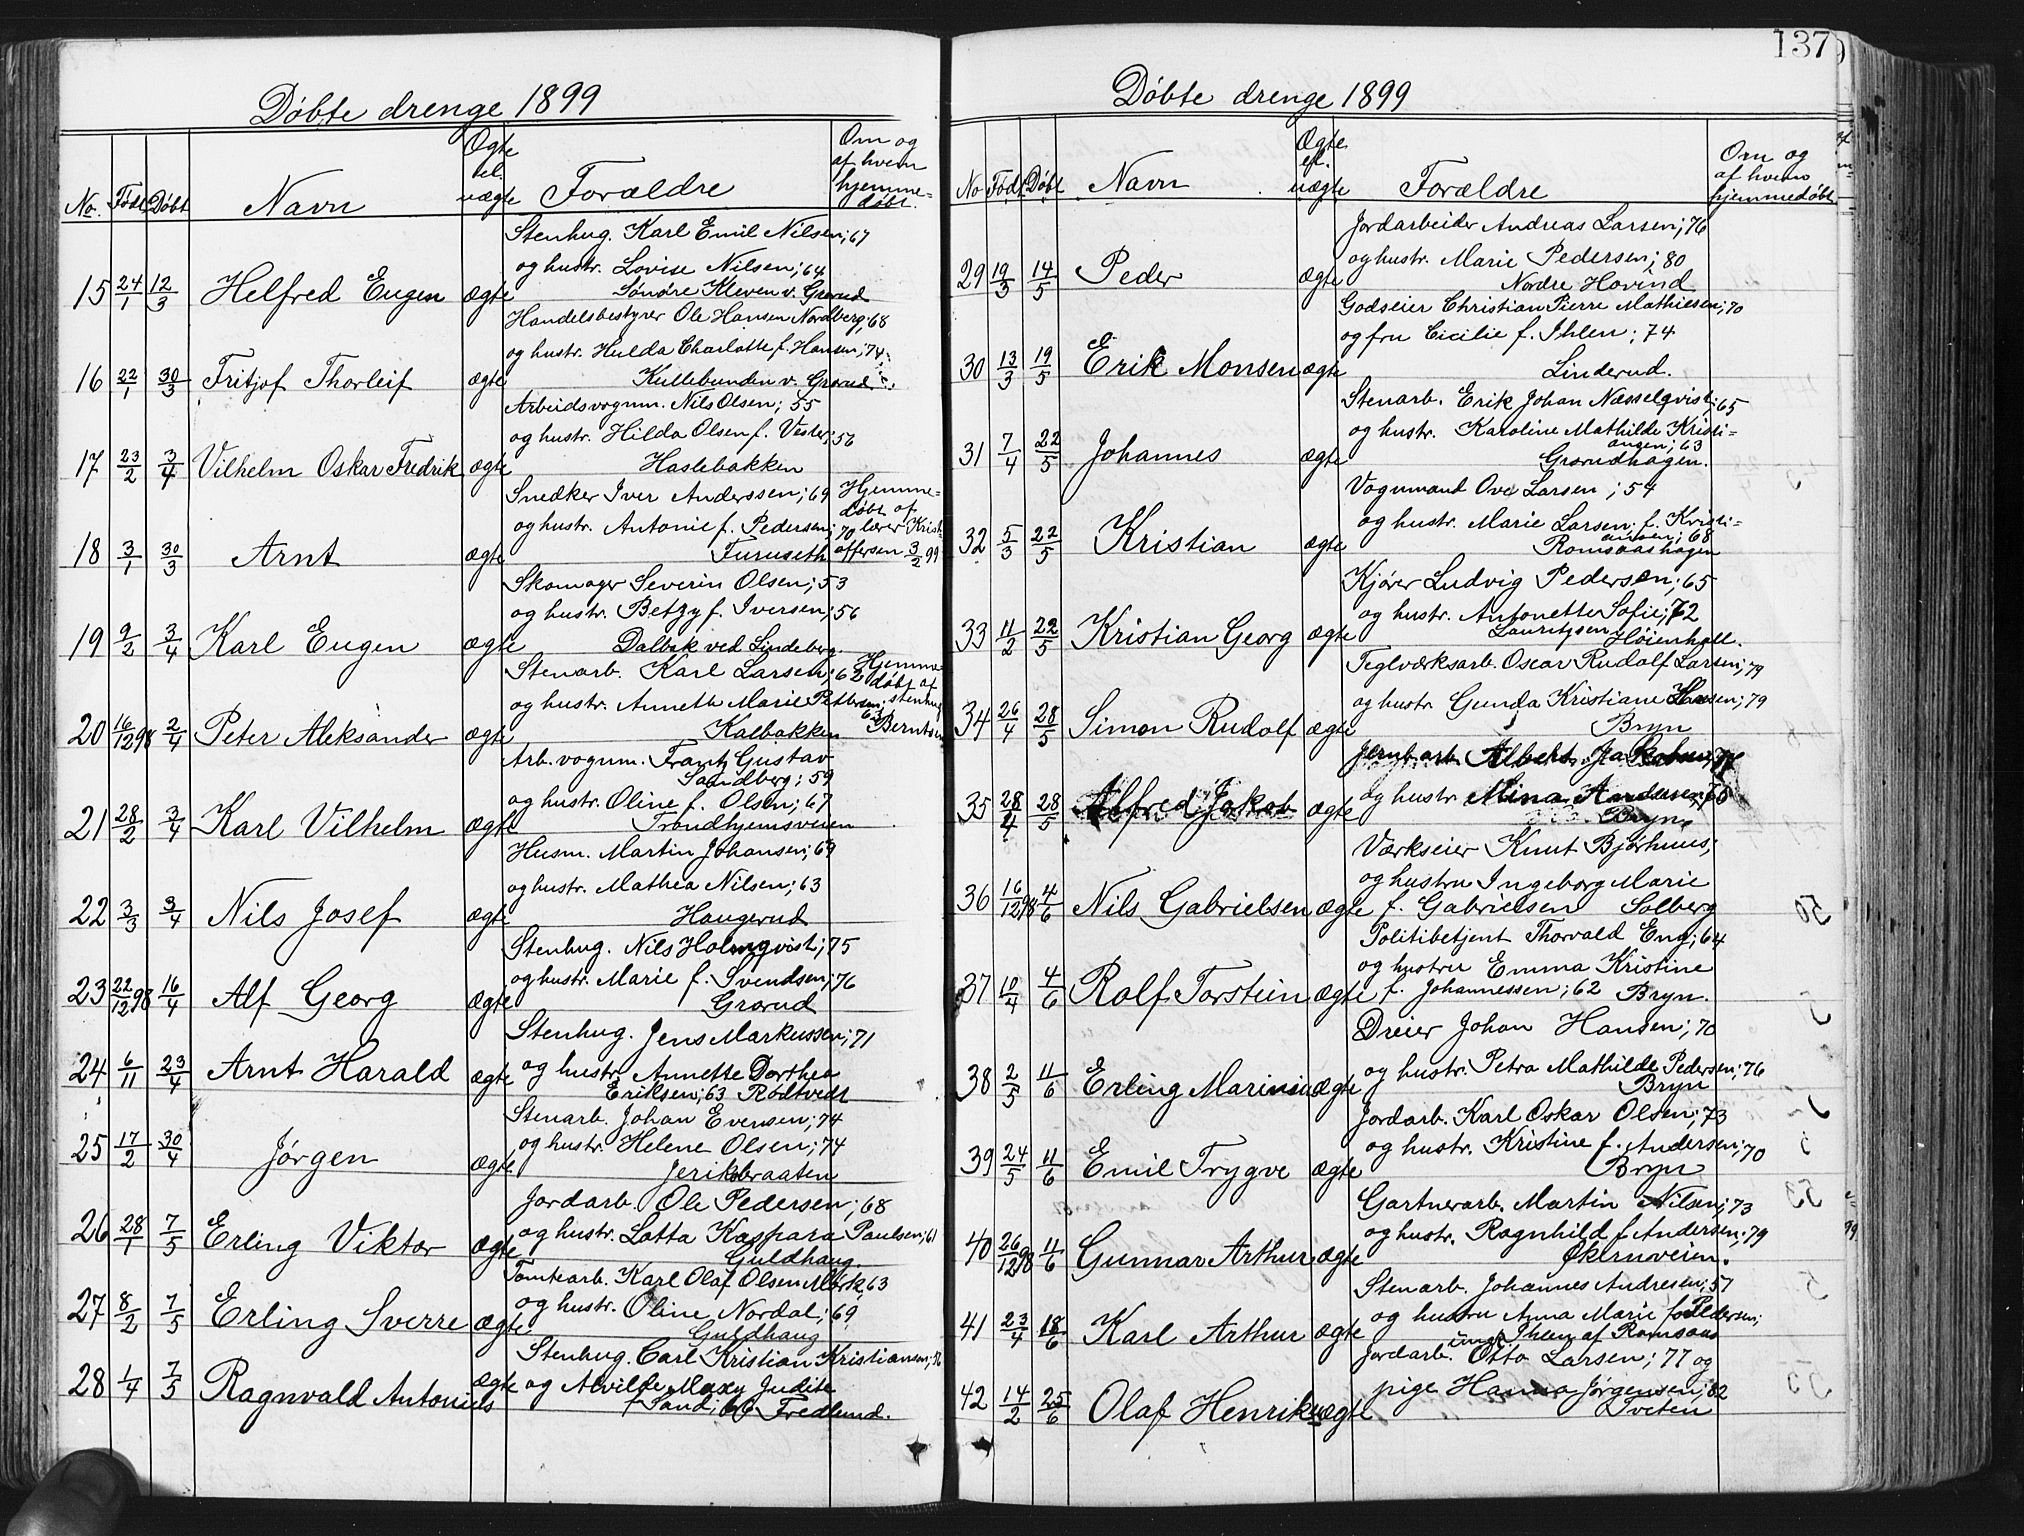 137
Døbte drenge 1899
No. Født Døbt Navn Ægte el. uægte Forældre Om og af hvem hjemme=døbt.
Stenhug. Karl Emil Nilsen; 67
og hustr. Lovise Nilsen; 64
15 24/1 12/3 Helfred Eugen ægte Søndre Kleven v. Grorud
Handelsbestyrer Ole Hansen Nordberg; 68
og hustr. Hulda Charlotte f. Hansen; 74
16 22/1 30/3 Fritjof Thorleif ægte Kullebunden v. Grorud
Arbeidsvognm. Nils Olsen; 55
og hustr. Hilda Olsen f. Vester; 56
17 23/2 3/4 Vilhelm Oskar Fredrik ægte Haslebakken
Snedker Iver Anderssen; 69 Hjemme=
og hustr. Antonie f. Pedersen; 70 døbt af lærer Krist
18 3/1 30/3 Arnt ægte Furuseth offersen 3/2 99
Skomager Severin Olsen; 53
og hustr. Betzy f. Iversen; 56
19 9/2 3/4 Karl Eugen ægte Dalbak ved Lindeberg.
Stenarb. Karl Larsen; 62 Hjemme=døbt af
og hustr. Annette Marie Pettersen; 63 stenhug
20 16/12 98 2/4 Peter Aleksander ægte Kalbakken Berntsen
Arb.vognm. Frantz Gustav
Sandberg; 59
og hustr. Oline f. Olsen; 67
21 28/2 3/4 Karl Vilhelm ægte Trondhjemsveien
Husm. Martin Johansen; 69
og hustr. Mathea Nilsen; 63
22 3/3 3/4 Nils Josef ægte Haugerud
Stenhug. Nils Holmqvist; 75
og hustr. Marie f. Svendsen; 76
23 22/12 98 16/4 Alf Georg ægte Grorud
Stenhug. Jens Markussen; 71
og hustr. Annette Dorthea
24 6/11 23/4 Arnt Harald ægte Eriksen; 63 Rødtvedt
Stenarb. Johan Evensen; 74
og hustr. Helene Olsen; 74
25 17/2 30/4 Jørgen ægte Jerikobraaten
Jordarb. Ole Pedersen; 68
og hustr. Lotta Kaspara Paulsen; 61
26 28/1 7/5 Erling Viktor ægte Guldhaug.
Tomtearb. Karl Olaf Olsen Mørk; 63
og hustr. Oline Nordal; 69
27 8/2 7/5 Erling Sverre ægte Guldhaug
Stenhug. Carl Kristian Kristiansen;
28 1/4 7/5 Ragnvald Antonius ægte og Alvilde Maxy Judite
f. Sand; 66 Fredlund.
Døbte drenge 1899
No Født Døbt Navn Ægte el. uægte Forældre Om og af hvem hjemmedøbt
Jordarbeider Andreas Larsen; 76
og hustr. Marie Pedersen; 80
29 19/3 14/5 Peder ægte Nordre Hovind
Godseier Christian Pierre Mathiesen; 70
og fru Cicilie f. Ihlen; 74
30 13/3 19/5 Erik Monsen ægte Linderud.
Stenarb. Erik Johan Næsselqvist; 65
og hustr. Karoline Mathilde Kristi=
ansen; 63
31 7/4 22/5 Johannes ægte Grorudhagen.
Vognmand Ove Larsen; 54
og hustr. Marie Larsen f. Kristi=
ansen; 68
32 5/3 22/5 Kristian ægte Romsaashagen
Kjører Ludvig Pedersen; 65
og hustr. Antonette Sofie; 72
33 11/2 22/5 Kristian Georg ægte Lauritzsen Høienhall.
Teglværksarb. Oscar Rudolf Larsen; 79
og hustr Gunda Kristiane Hansen; 79
34 26/4 28/5 Simon Rudolf ægte Bryn
Jernb.arb. Albert Jakobsen; 74
og hustr Mina Andersen; 70
35 28/4 28/5 Alfred Jakob ægte Bryn
Værkseier Knut Bjørhuus;
og hustru Ingeborg Marie
36 16/12 98 4/6 Nils Gabrielsen ægte f. Gabrielsen Solberg
Politibetjent Thorvald Eng; 64
og hustru Emma Kristine
37 10/4 4/6 Rolf Torstein ægte f. Johannessen; 62 Bryn.
Dreier Johan Hansen; 70
og hustr. Petra Mathilde Pedersen; 76
38 2/5 11/6 Erling Marinius ægte Bryn
Jordarb. Karl Oskar Olsen; 73
og hustr. Kristine f. Andersen; 70
39 24/5 11/6 Emil Trygve ægte Bryn
Gartnerarb. Martin Nilsen; 73
og hustr. Ragnhild f. Andersen; 79
40 26/12 98 11/6 Gunnar Arthur ægte Økernveien.
Stenarb. Johannes Andresen; 57
og hustru Anna Marie f. Pedersen;
41 23/4 18/6 Karl Arthur ægte Ihlen af Romsaas
Jordarb. ungk. Otto Larsen; 77 og
pige Hanna Jørgensen; 82
42 14/2 25/6 Olaf Henrik uægte Tveten